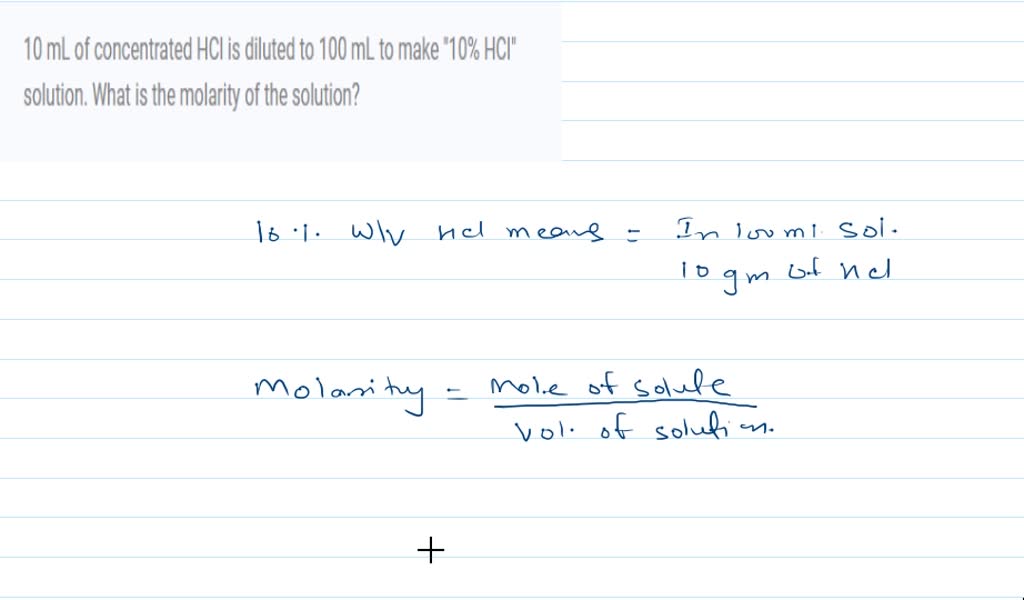 10 mL of concentrated HCl is diluted to 100 mL to make "10% HCl"
solution. What is the molarity of the solution?
10 % w/v HCl means = In 100 ml sol.
10 gm of HCl
Molarity = mole of solute
vol. of solution.